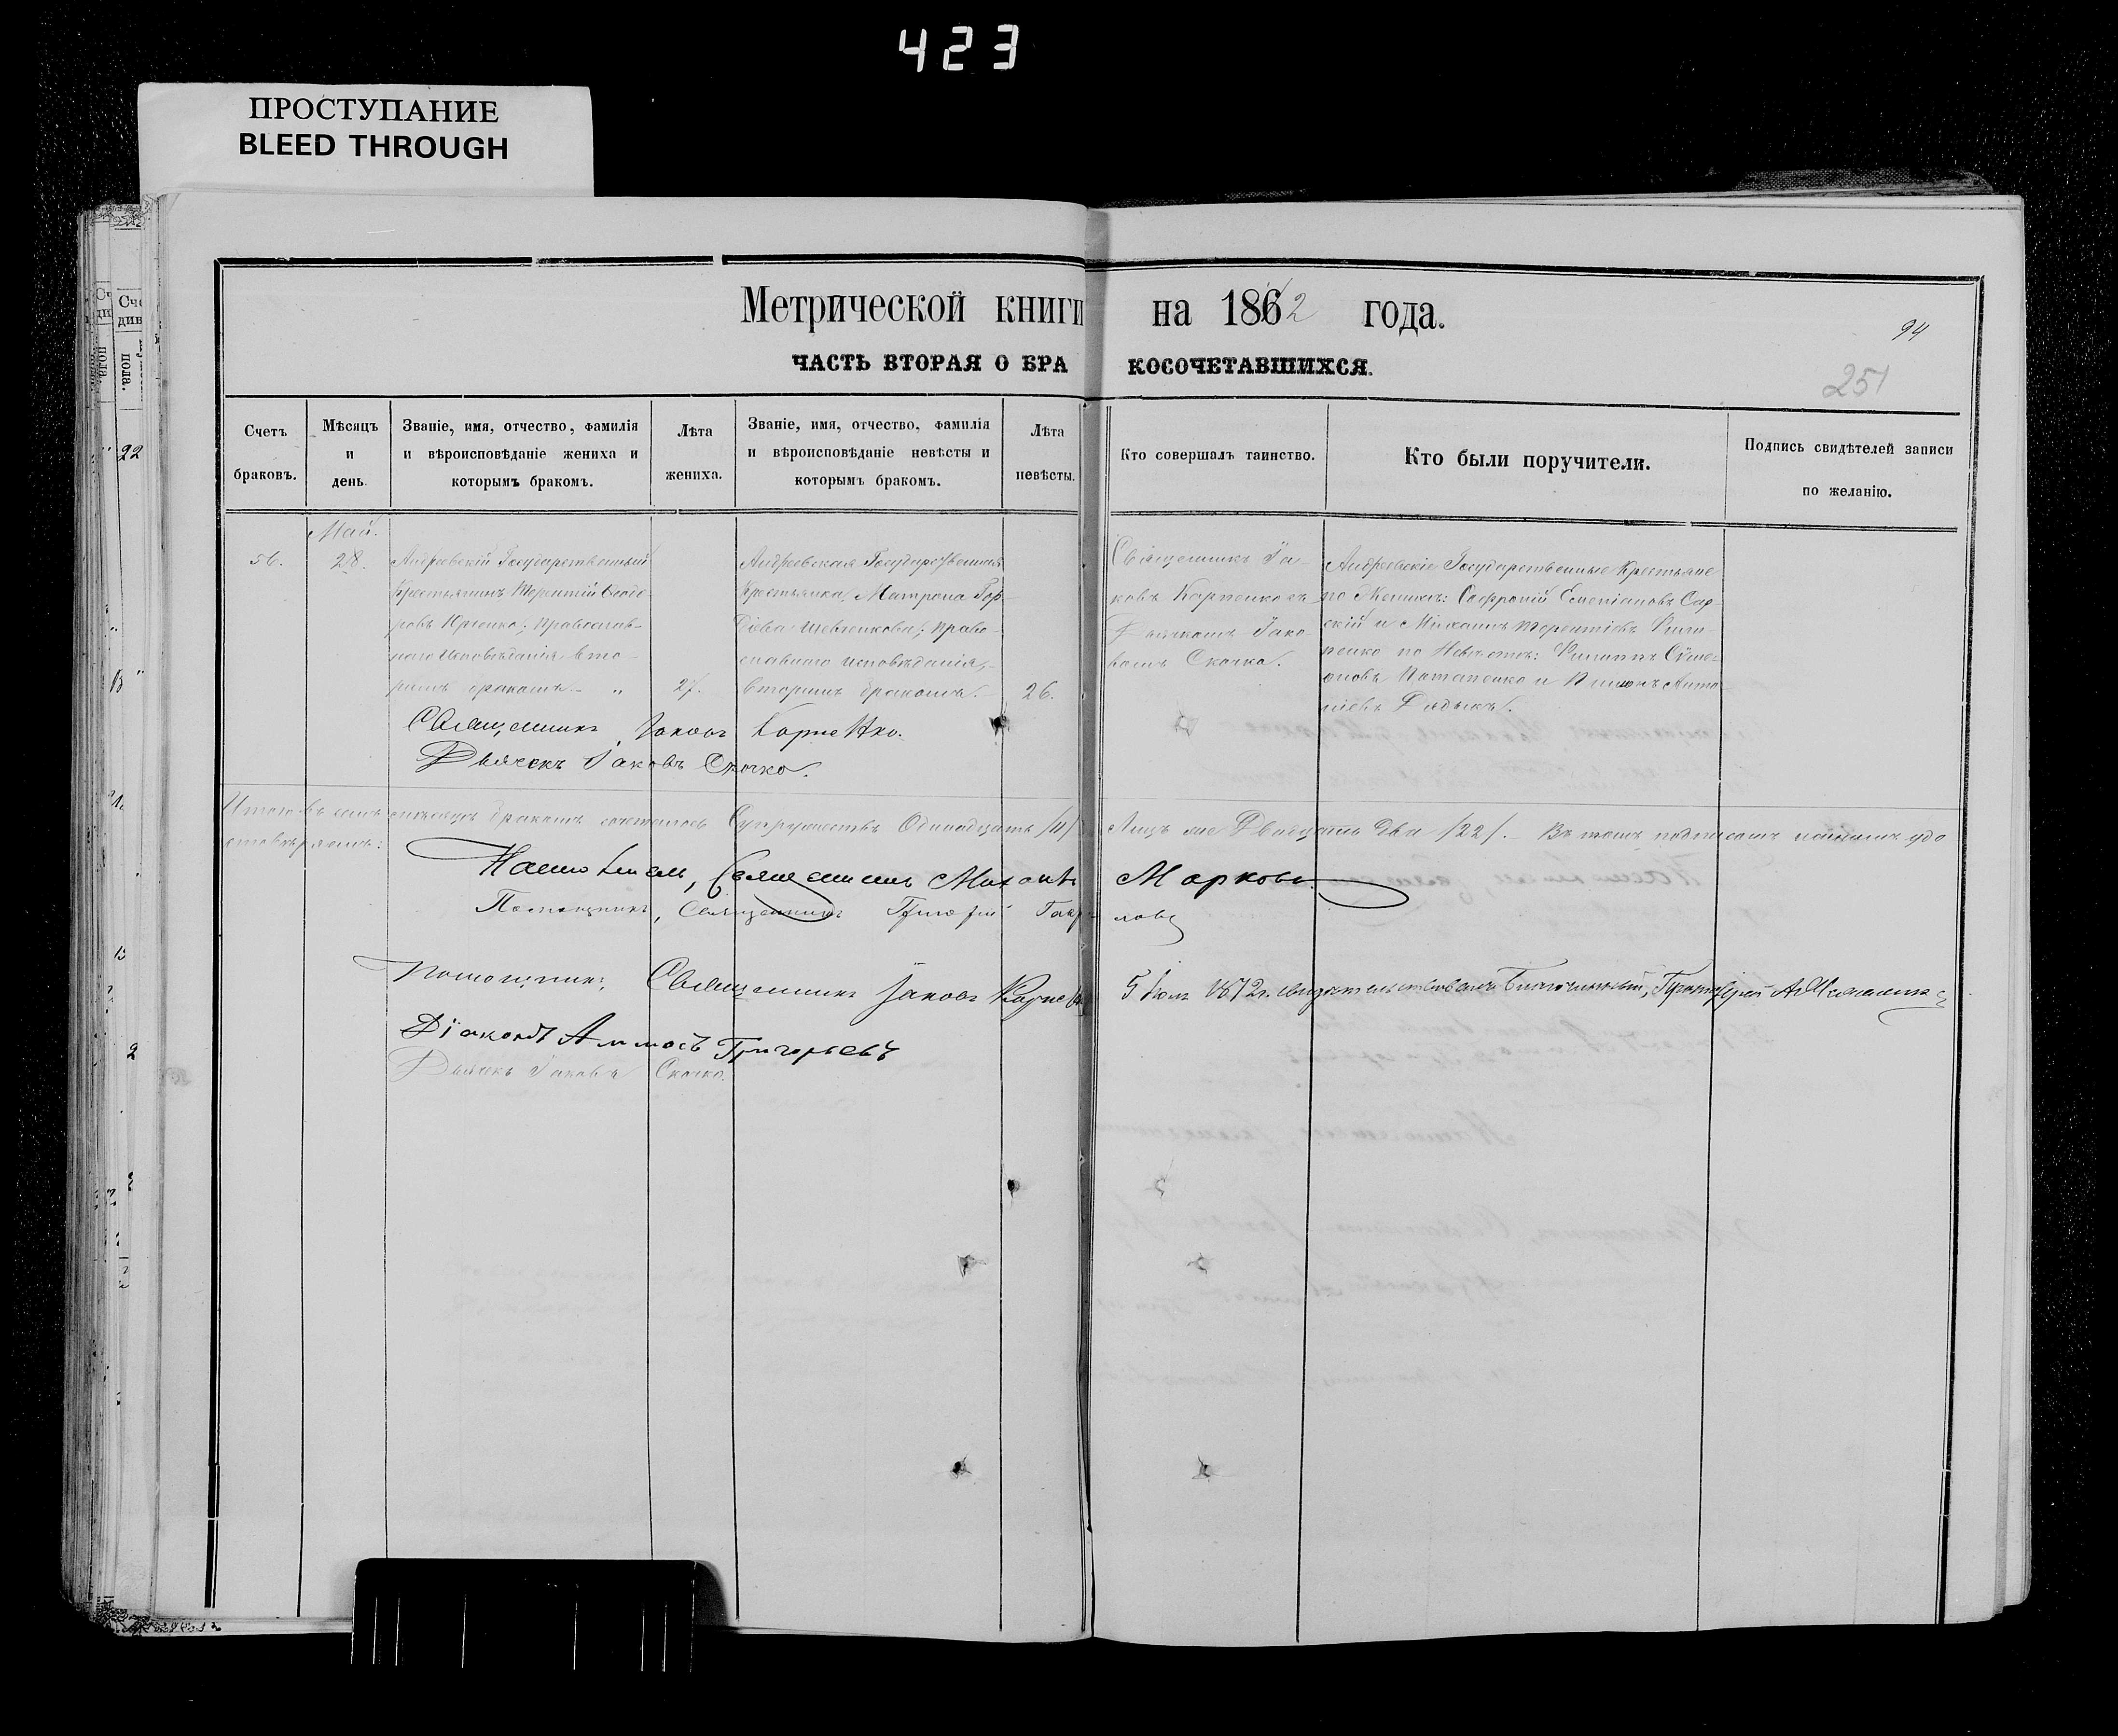 423
ПРОСТУПАНИЕ
BLEED THROUGH
Метрической книги на 1862 года.
94
ЧАСТЬ ВТОРАЯ О БРАКОСОЧЕТАВШИХСЯ.
251
Счетъ браковъ.
Мѣсяцъ и день.
Званіе, имя, отчество, фамилія
и вѣроисповѣданіе жениха и
которымъ бракомъ.
Лѣта жениха.
Званіе, имя, отчество, фамилія
и вѣроисповѣданіе невѣсты и
которымъ бракомъ.
Лѣта невѣсты.
Кто совершалъ таинство.
Кто были поручители.
Подпись свидѣтелей записи
по желанію.
Май.
56.
28.
Андреевскій Государственный
Крестьянинъ Терентій Ѳеодо-
ровъ Юрченко; православ-
наго исповѣданія вто-
рымъ бракомъ. "
27.
Андреевская Государственная
Крестьянка, Матрона Гор-
діева Шевченкова; право-
славнаго исповѣданія,
вторымъ бракомъ.
26.
Священникъ Іа-
ковъ Корненко съ
Дьячкомъ Іако-
вомъ Скочко.
Андреевскіе Государственные Крестьяне
по Женихѣ: Софроній
скій и Михаилъ Терентіевъ
ненко по Невѣстѣ: Филиппъ Симе-
оновъ Потапенко и Анто-
ніевъ
Священникъ Іаковъ Корненко.
Дьячекъ Іаковъ Скочко.
Итого въ семъ мѣсяцѣ бракомъ сочеталось Супружествъ Одинадцать /11/ Лицъ же Двадцать два /22/. Въ томъ подписомъ нашимъ удо
стовѣряемъ:
Настоятель, Священникъ Михаилъ Марковъ
Помощникъ, Священникъ Григорій
Помощникъ, Священникъ Іаковъ Корненко
5 Іюля 1872 г. свидѣтельствовалъ Благочинный, Протоіерей
Діаконъ Аммосъ Григорьевъ
Дьячекъ Іаковъ Скочко.